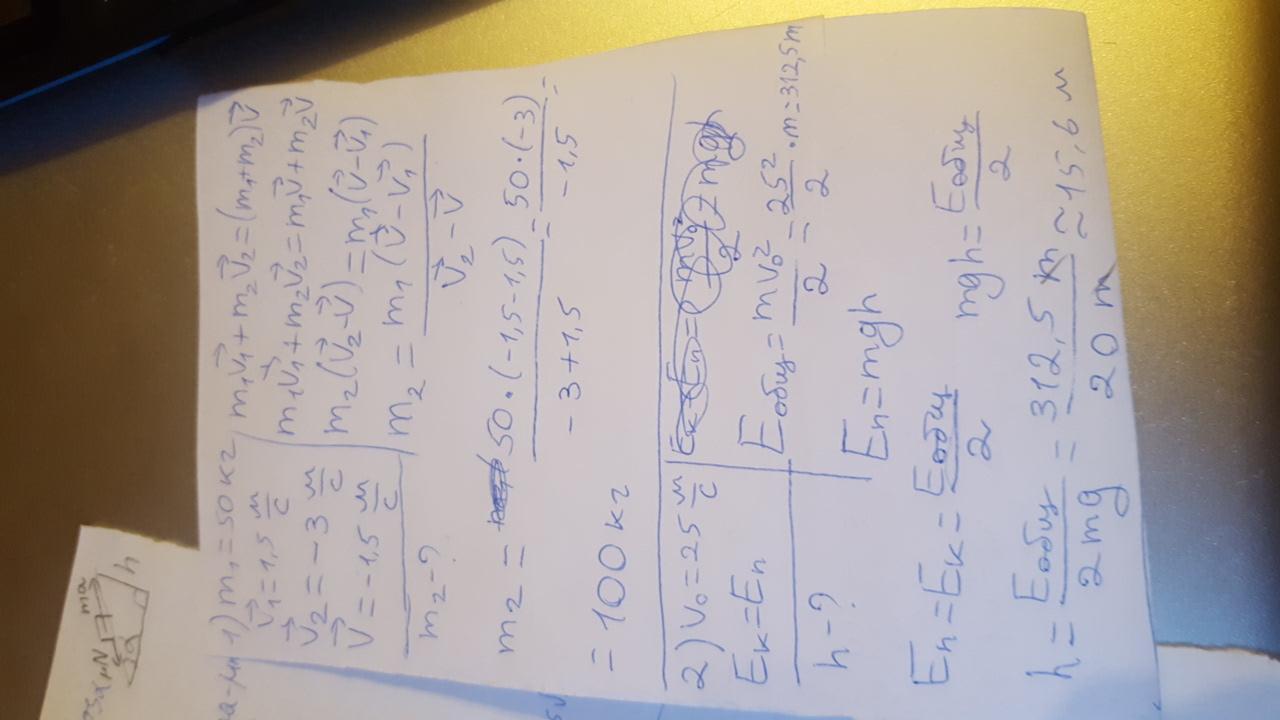 1) m₁=50кг
V⃗₁=1,5 м/с
V⃗₂=-3 м/с
V⃗=-1,5 м/с
m₂-?
m₁V⃗₁+m₂V⃗₂=(m₁+m₂)V⃗
m₁V⃗₁+m₂V⃗₂=m₁V⃗+m₂V⃗
m₂(V⃗₂-V⃗)=m₁(V⃗-V⃗₁)
m₂=m₁(V⃗-V⃗₁)/V⃗₂-V⃗
m₂=50·(-1,5-1,5)/-3+1,5=50·(-3)/-1,5=
=100кг
2) V₀=25 м/с
Eк=Eп
h-?
Eобщ=mV₀²/2=25²/2·m=312,5m
Eп=mgh
Eп=Eк=Eобщ/2
mgh=Eобщ/2
h=Eобщ/2mg=312,5m/20m≈15,6м